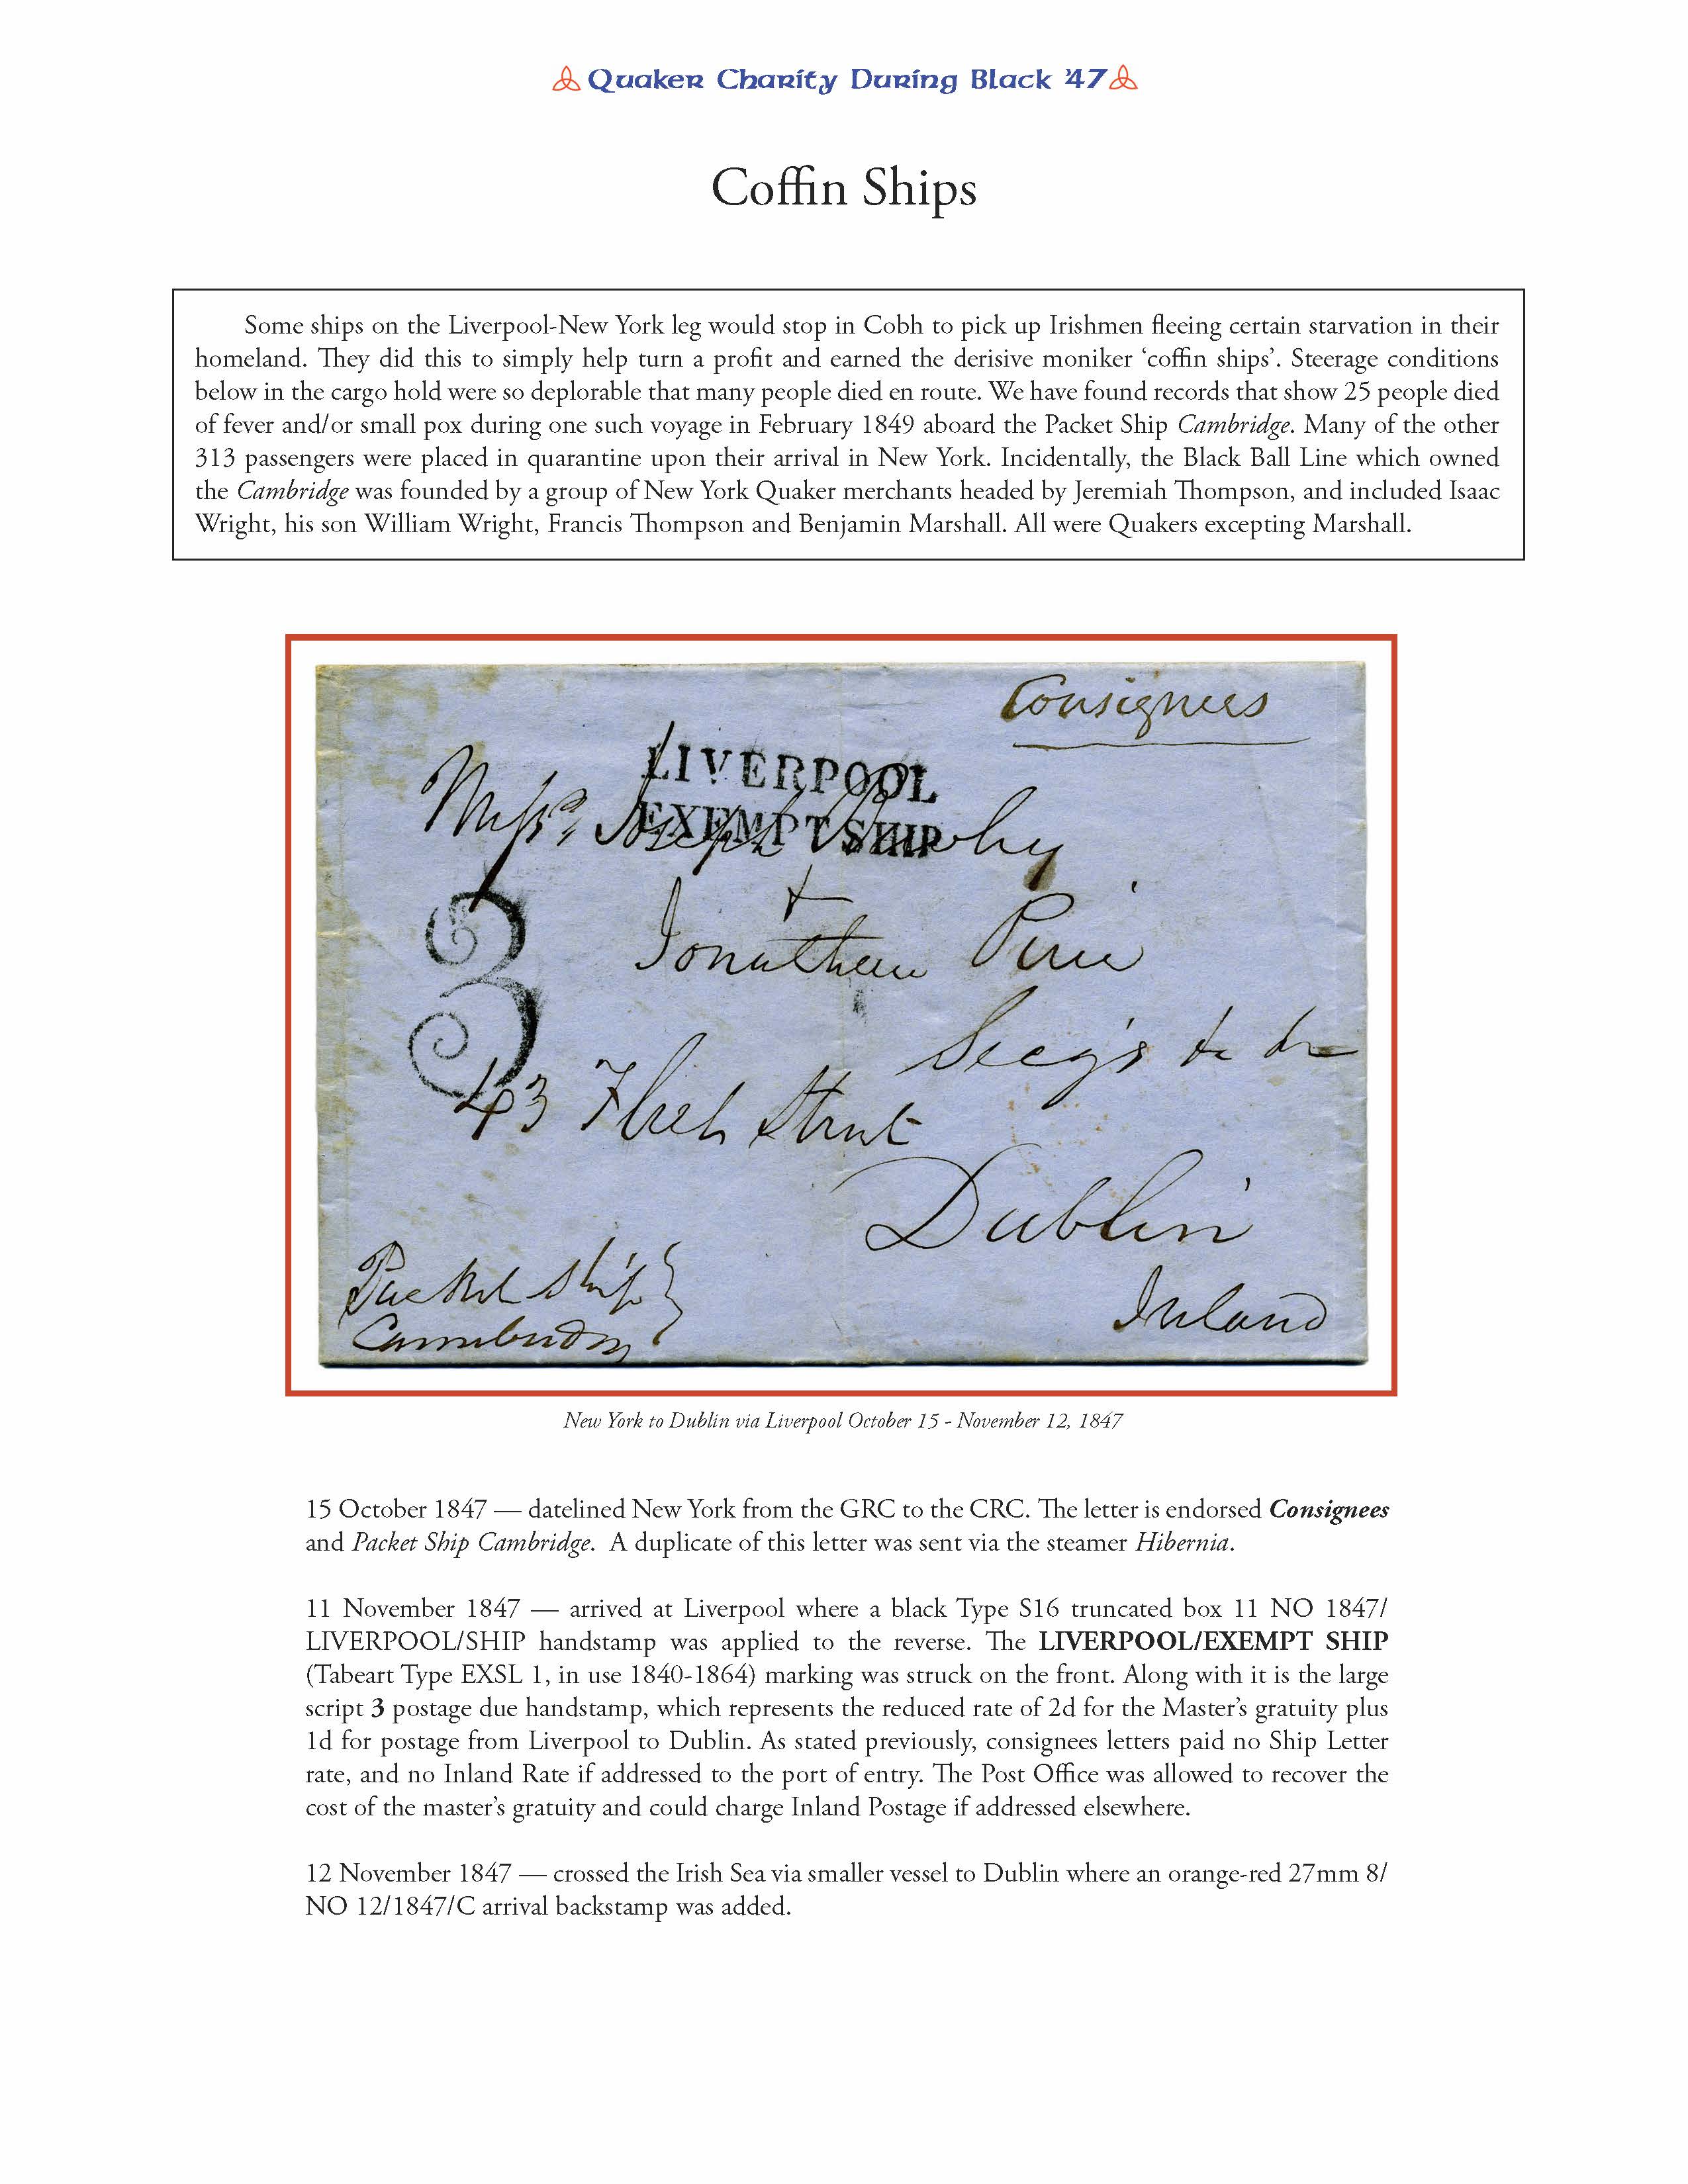 Quaker Charity During Black '47
Coffin Ships
Some ships on the Liverpool-New York leg would stop in Cobh to pick up Irishmen fleeing certain starvation in their
homeland. They did this to simply help turn a profit and earned the derisive moniker ‘coffin ships’. Steerage conditions
below in the cargo hold were so deplorable that many people died en route. We have found records that show 25 people died
of fever and/or small pox during one such voyage in February 1849 aboard the Packet Ship Cambridge. Many of the other
313 passengers were placed in quarantine upon their arrival in New York. Incidentally, the Black Ball Line which owned
the Cambridge was founded by a group of New York Quaker merchants headed by Jeremiah Thompson, and included Isaac
Wright, his son William Wright, Francis Thompson and Benjamin Marshall. All were Quakers excepting Marshall.
Consignees
LIVERPOOL
EXEMPT SHIP
Messrs Joseph Bewley
+
Jonathan Pim
3
Secy's
43 Fleet Street
Dublin
Packet Ship
Cambridge
Ireland
New York to Dublin via Liverpool October 15 - November 12, 1847
15 October 1847 — datelined New York from the GRC to the CRC. The letter is endorsed Consignees
and Packet Ship Cambridge. A duplicate of this letter was sent via the steamer Hibernia.
11 November 1847 — arrived at Liverpool where a black Type S16 truncated box 11 NO 1847/
LIVERPOOL/SHIP handstamp was applied to the reverse. The LIVERPOOL/EXEMPT SHIP
(Tabeart Type EXSL 1, in use 1840-1864) marking was struck on the front. Along with it is the large
script 3 postage due handstamp, which represents the reduced rate of 2d for the Master’s gratuity plus
1d for postage from Liverpool to Dublin. As stated previously, consignees letters paid no Ship Letter
rate, and no Inland Rate if addressed to the port of entry. The Post Office was allowed to recover the
cost of the master’s gratuity and could charge Inland Postage if addressed elsewhere.
12 November 1847 — crossed the Irish Sea via smaller vessel to Dublin where an orange-red 27mm 8/
NO 12/1847/C arrival backstamp was added.